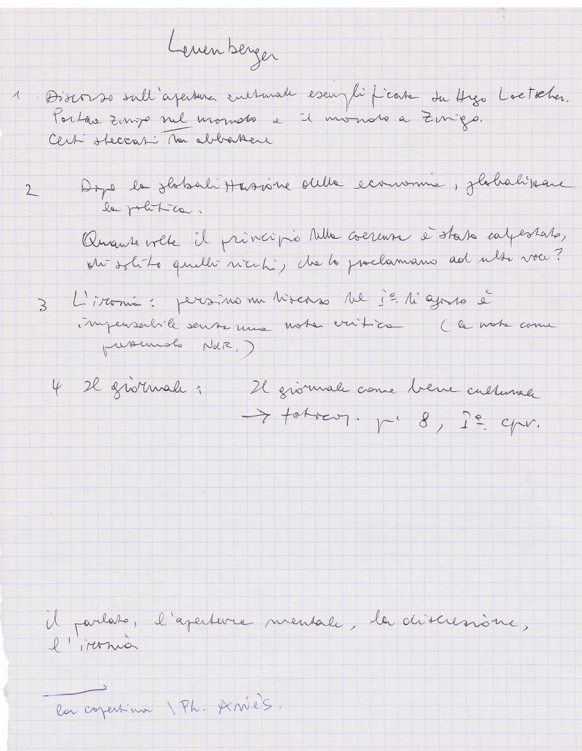 Leuenberger
1 Discorso sull'apertura culturale esemplificata su Hugo Loetscher.
Portare Zurigo nel mondo e il mondo a Zurigo.
Certi steccati da abbattere
2 Dopo la globalizzazione della economia, globalizzare
la politica.
Quante volte il principio della coerenza è stato calpestato,
di solito quelli ricchi, che lo proclamano ad alta voce?
3 L'ironia: persino un discorso del Iº di agosto è
impensabile senza una nota critica (la nota come
NdR.)
4 Il giornale: Il giornale come bene culturale
→ fotocop. p. 8, Iº cpv.
il parlato, l'apertura mentale, la discrezione,
l'ironia
la copertina \ Ph. Ariès.